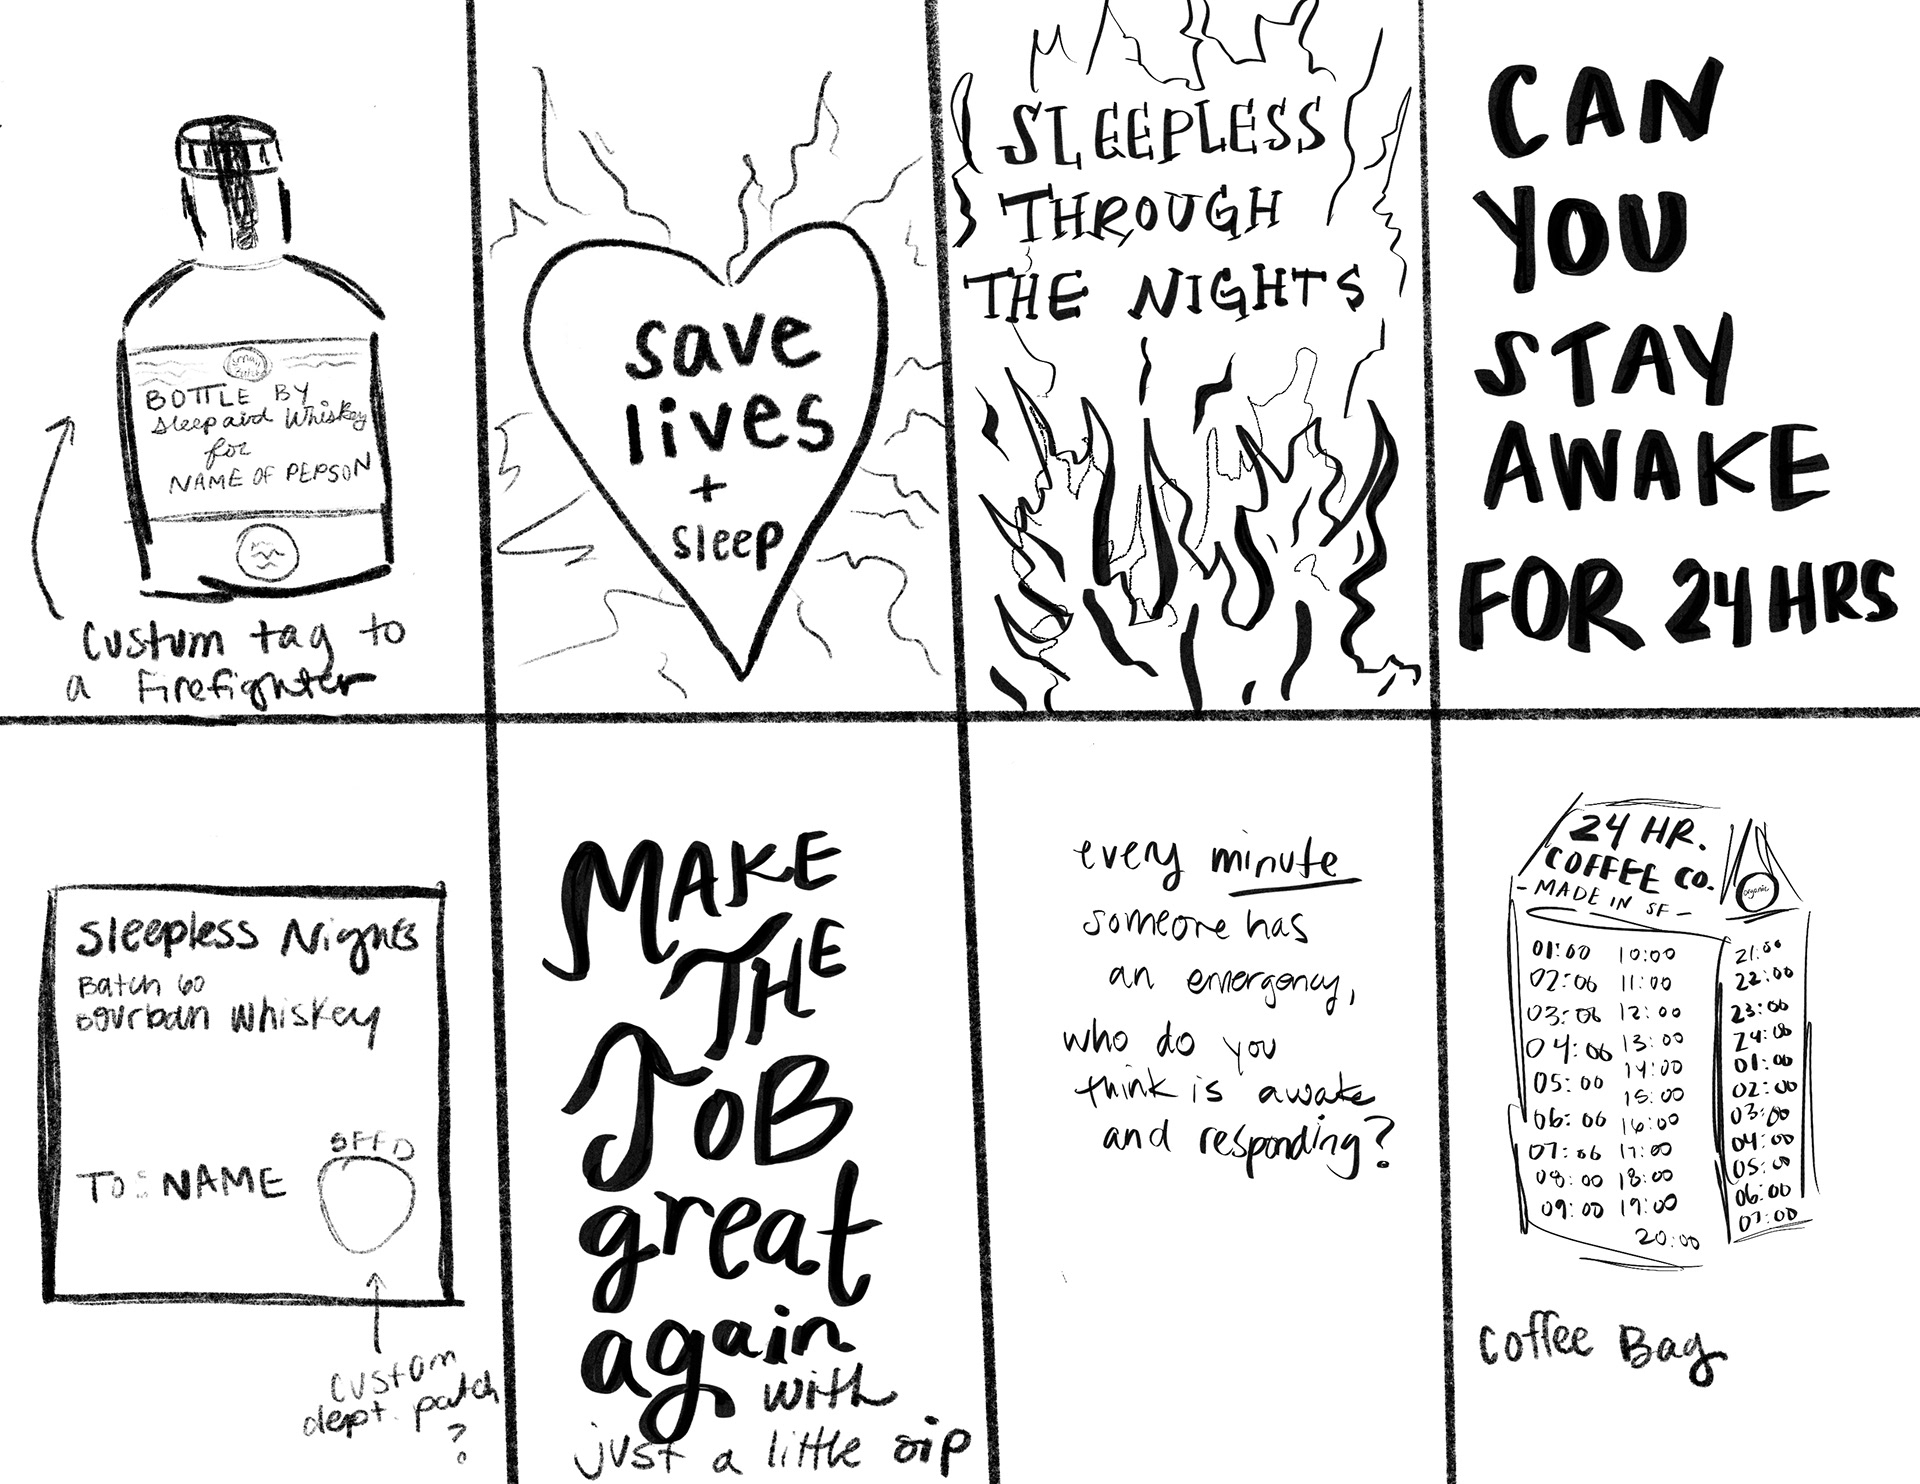 BOTTLE BY
Sleepaid Whiskey
for
NAME OF PERSON
Custum tag to
a Firefighter
save
lives
+
sleep
SLEEPLESS
THROUGH
THE NIGHTS
CAN
YOU
STAY
AWAKE
FOR 24 HRS
Sleepless Nights
Batch 60
Bourban Whiskey
SFFD
TO: NAME
custom
dept. patch
?
MAKE
THE
JOB
great
again
with
just a little sip
every minute
someone has
an emergency,
who do you
think is awake
and responding?
24 HR.
COFFEE CO.
- MADE IN SF -
organic
01:00 10:00
02:00 11:00
03:00 12:00
04:00 13:00
05:00 14:00
15:00
06:00 16:00
07:00 17:00
08:00 18:00
09:00 19:00
20:00
21:00
22:00
23:00
24:00
01:00
02:00
03:00
04:00
05:00
06:00
07:00
Coffee Bag